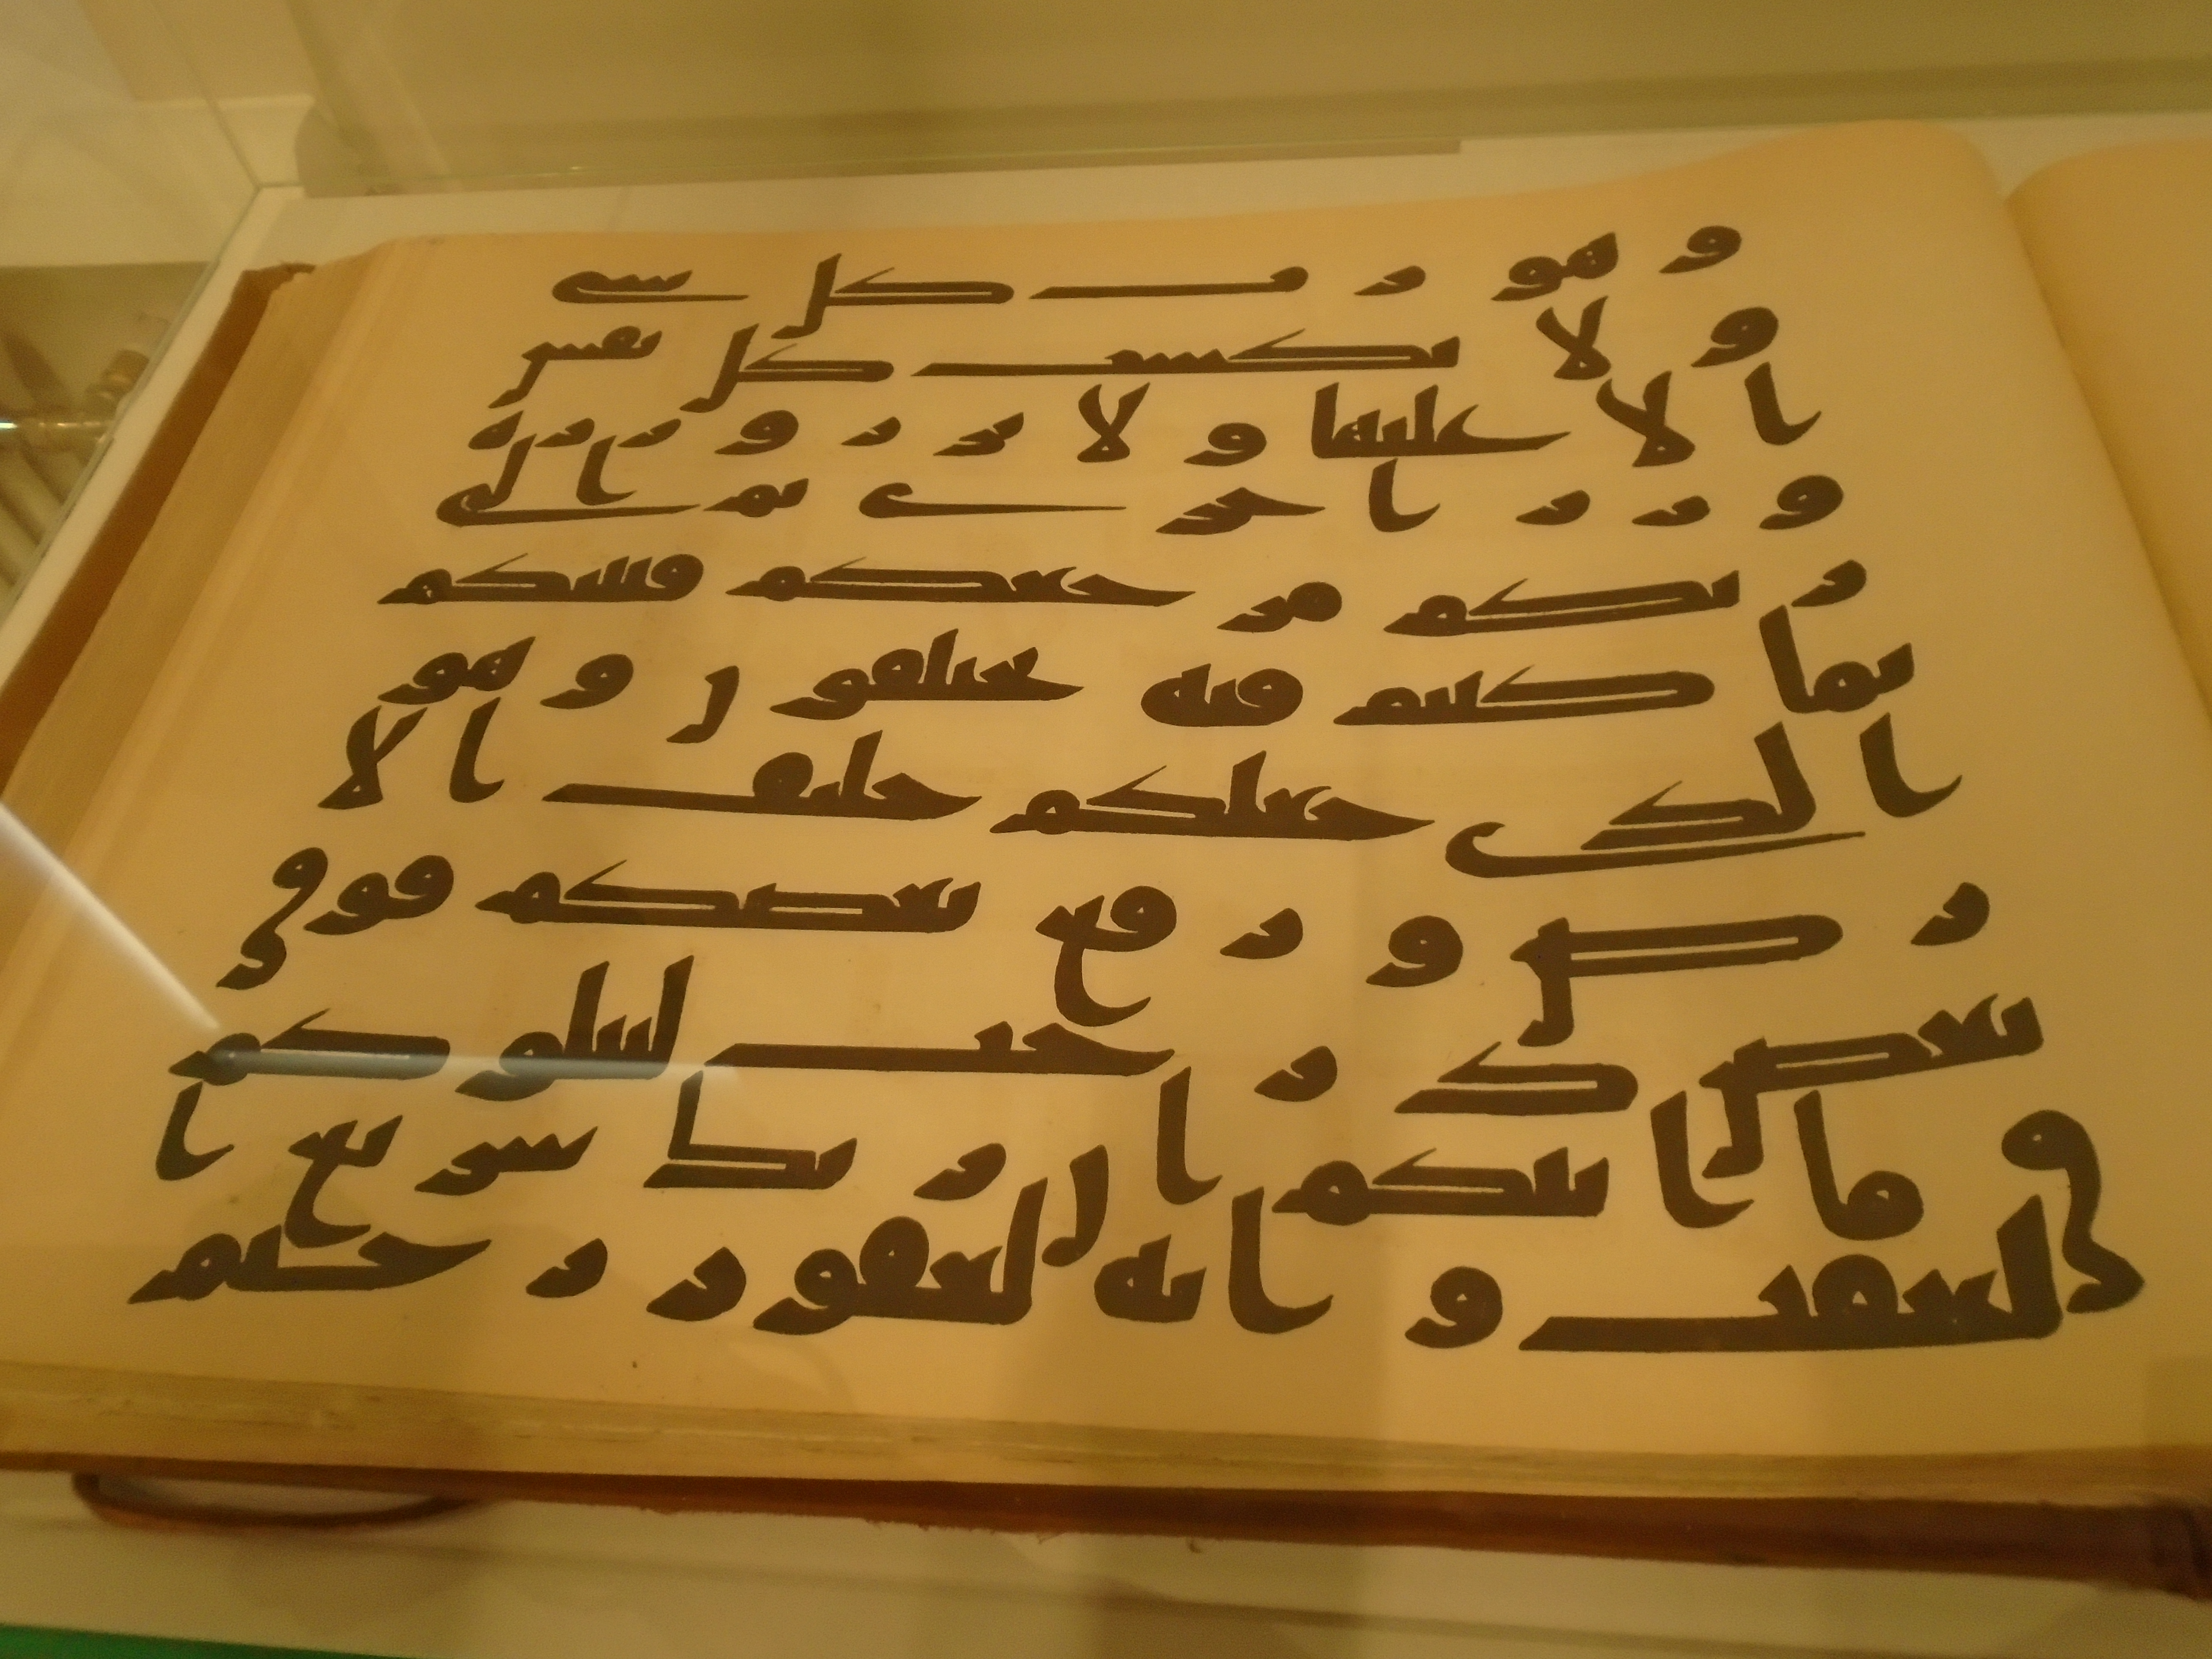 وهو رب كل شى
ولا تكسب كل نفس
الا عليها ولا تزر وازرة
وزر اخرى ثم الى
ربكم مرجعكم فينبئكم
بما كنتم فيه تختلفون وهو
الذى جعلكم خلئف الا
رض ورفع بعضكم فوق
بعض درجت ليبلوكم
فى ما اتيكم ان ربك سريع ا
لعقب وانه لغفور رحيم